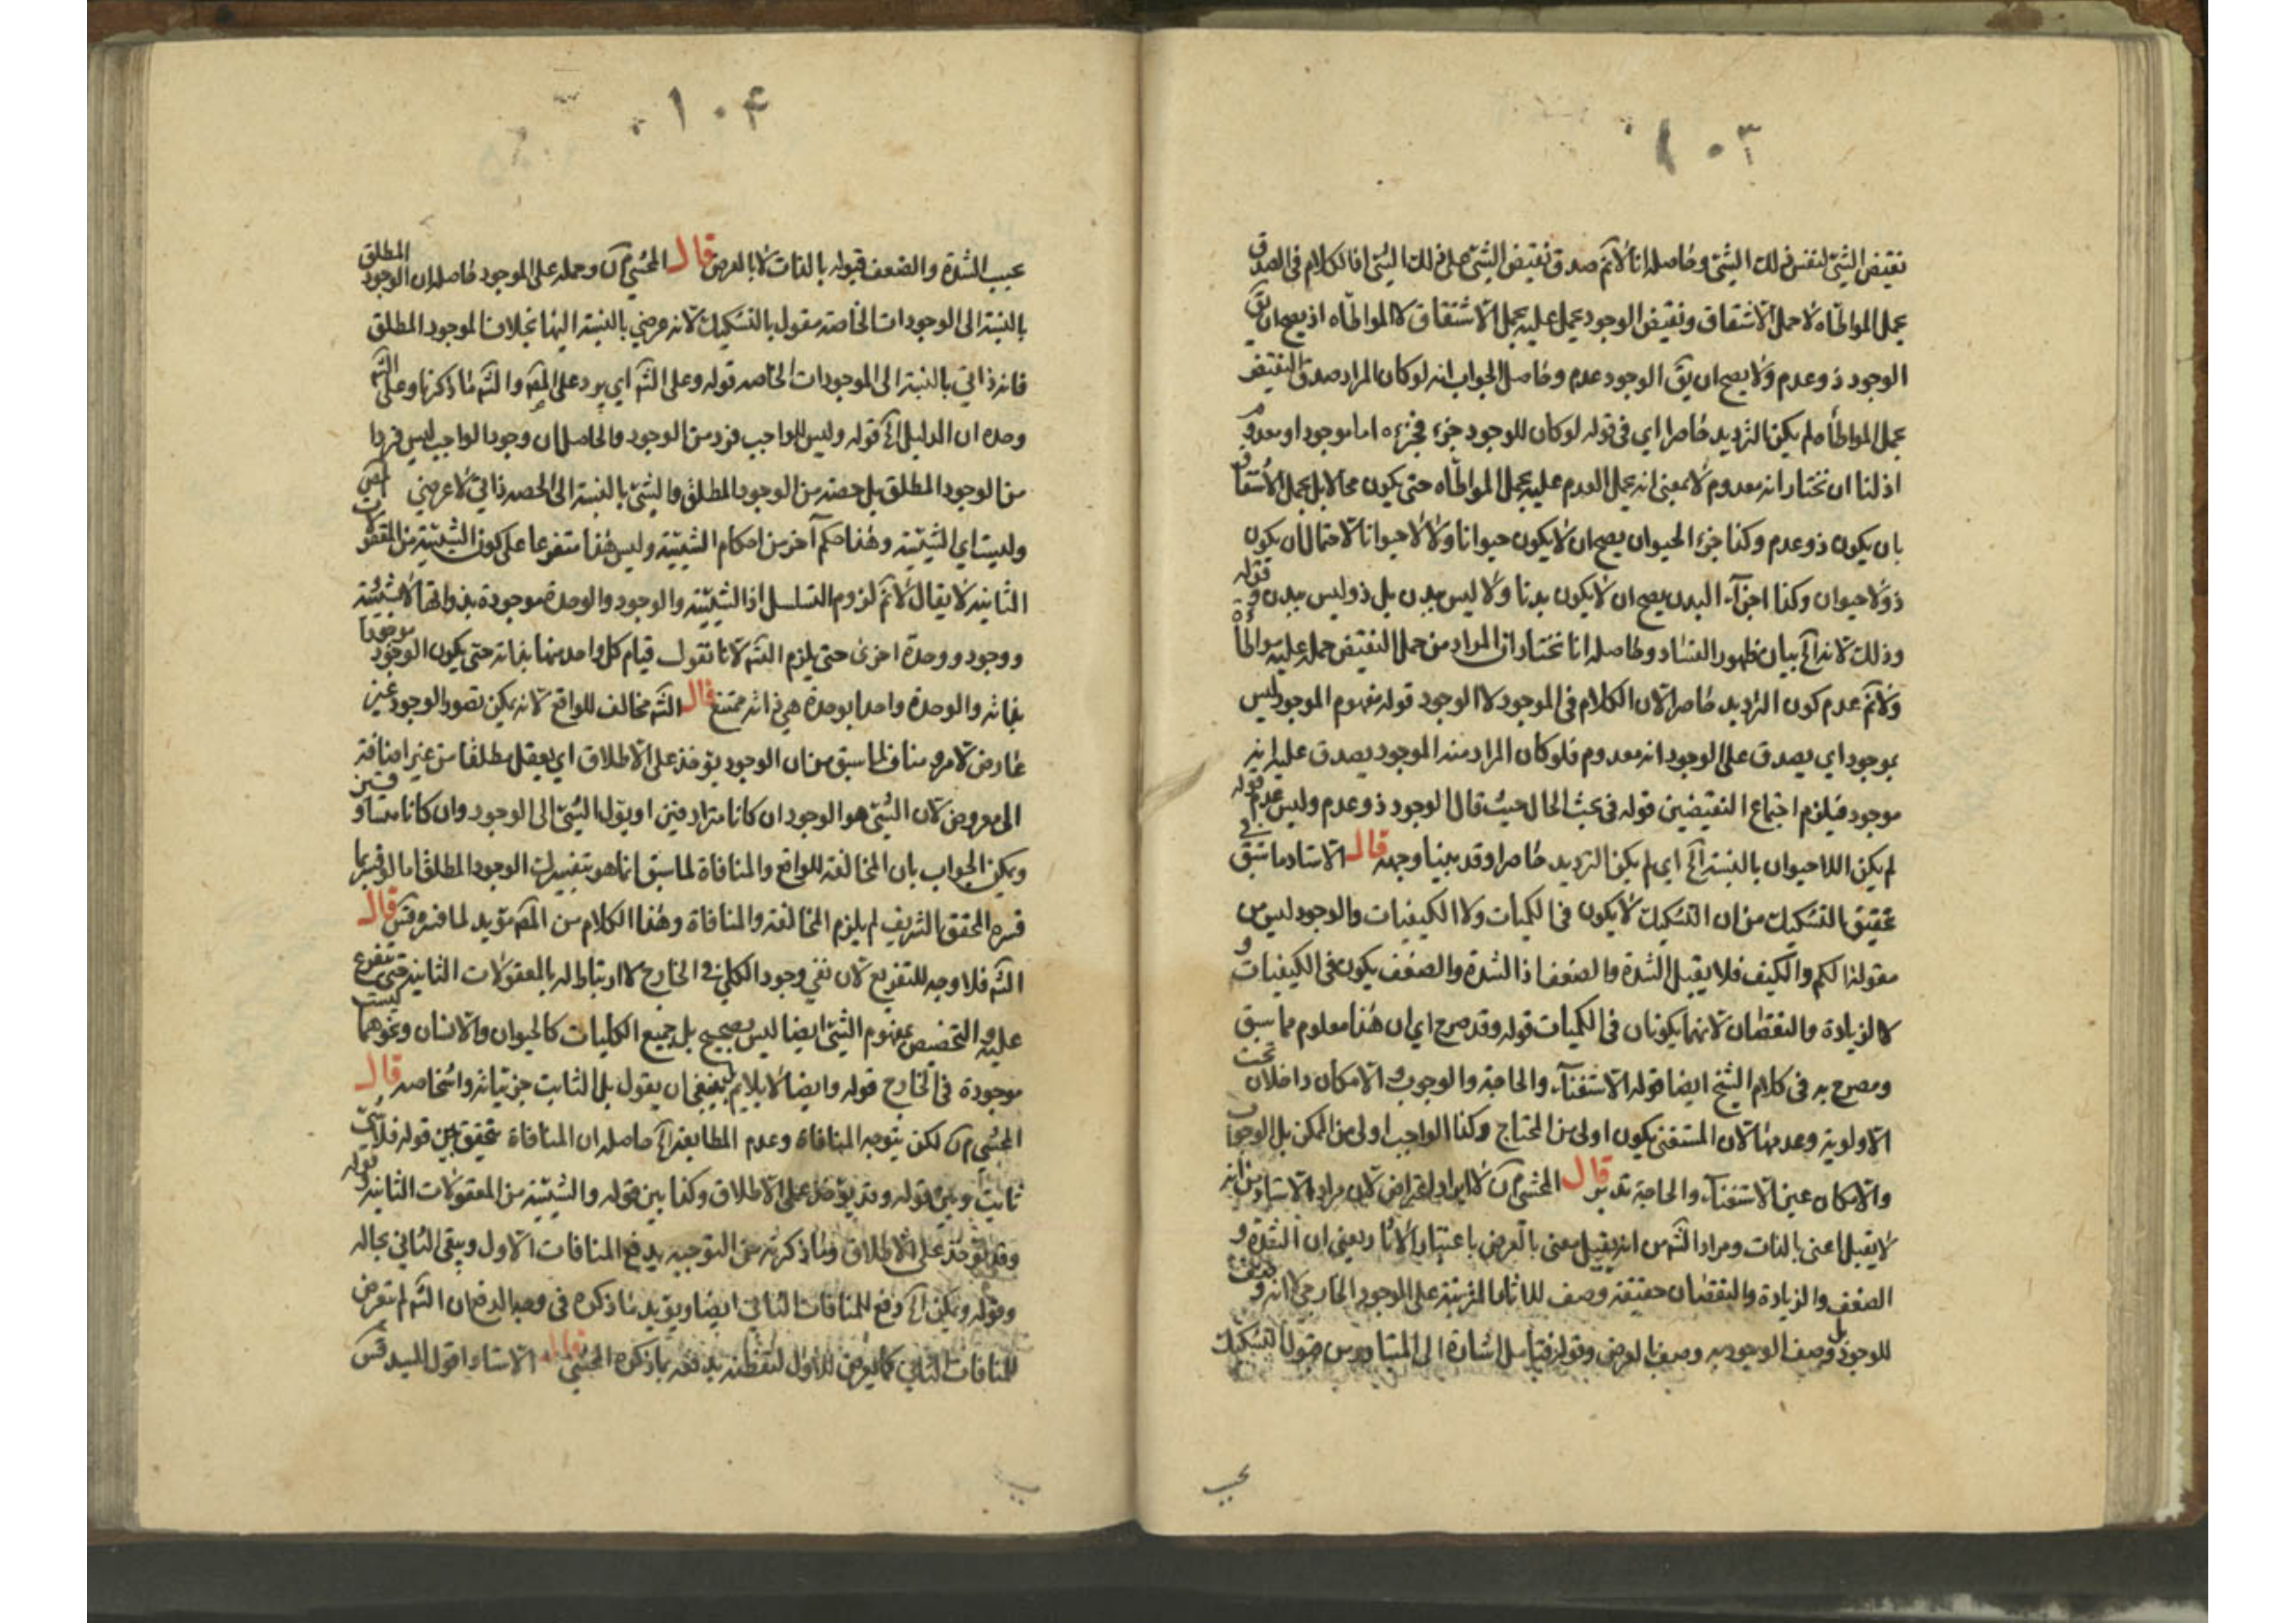 ١٠٣
نقيض الشئ لنفس ذلك الشئ وحاصله انا لانم صدق نقيض الشئ على ذلك الشئ اذ الكلام فى الصدق
بحمل المواطاه لا حمل الاشتقاق ونقيض الوجود يحمل عليه بحمل الاشتقاق لا المواطاه اذ يصح ان يق
الوجود ذو عدم ولا يصح ان يق الوجود عدم وحاصل الجواب انه لو كان المراد صدق النقيض
بحمل المواطاه لم يكن الترديد حاصرا اى فى قوله لو كان للوجود جزء فجزءه اما موجود او معدوم
اذ لنا ان نختار انه معدوم لا بمعنى انه يحمل العدم عليه بحمل المواطاه حتى يكون محالا بل بحمل الاشتقاق
بان يكون ذو عدم وكذا جزء الحيوان يصح ان لا يكون حيوانا ولا لا حيوانا لاحتمال ان يكون
ذو لا حيوان وكذا اجزآء البدن يصح ان لا يكون بدنا ولا ليس ببدن بل ذو ليس ببدن قوله
وذلك لانه الخ بيان لظهور الفساد وحاصله انا نختار ان المراد من حمل النقيض حمله عليه مواطاة
ولانم عدم كون الترديد حاصرا لان الكلام فى الموجود لا الوجود قوله مفهوم الموجود ليس
بموجود اى يصدق على الوجود انه معدوم فلو كان المراد منه الموجود يصدق عليه انه
موجود فيلزم اجتماع النقيضين قوله فى بحث الحال حيث قال الوجود ذو عدم وليس عدم قوله
لم يكن اللاحيوان بالنسبة الخ اى لم يكن الترديد حاصرا وقد بينا وجهه قال الاستاد ما سبق فى
تحقيق التشكيك من ان التشكيك لا يكون فى الكميات ولا الكيفيات والوجود ليس من
مقولة الكم والكيف فلا يقبل الشدة والضعف اذ الشدة والضعف يكون فى الكيفيات و
لا الزيادة والنقصان لانهما يكونان فى الكميات قوله وقد صرح اى ان هذا معلوم مما سبق
ومصرح به فى كلام الشيخ ايضا قوله الاستغنآء والحاجة والوجوب والامكان داخلان تحت
الاولوية وعدمها لان المستغنى يكون اولى من المحتاج وكذا الواجب اولى من الممكن بل الوجوب
والامكان عين الاستغنآء والحاجة تدبر قال المحشى لا ايراد اعتراض لان مراد الاستاد من انه
لا يقبل اعنى بالذات ومراد الشم من انه يقبل معنى بالعرض باعتبار الاثار يعنى ان الشدة و
الضعف والزيادة والنقصان حقيقة وصف للاثار المترتبة على الموجود الخارجى
للوجود بل وصف الوجود به وصف بالعرض وقوله فتأمل اشارة الى المتبادر من قبول التشكيك
بحسب
١٠٤
بحسب الشدة والضعف قبوله بالذات لا بالعرض قال المحشى وحمله على الموجود حاصله ان الوجود المطلق
بالنسبة الى الوجودات الخاصة مقول بالتشكيك لانه عرضى بالنسبة اليها بخلاف الموجود المطلق
فانه ذاتى بالنسبة الى الموجودات الخاصه قوله وعلى الشم اى يرد على المص والشم ما ذكرنا وعلى الشم
وحده ان الدليل الخ قوله وليس للواجب فرد من الوجود والحاصل ان وجود الواجب ليس فردا
من الوجود المطلق بل حصة من الوجود المطلق والشئ بالنسبة الى الحصه ذاتى لا عرضى
وليست اى الشيئية وهذا حكم آخر من احكام الشيئية وليس هذا متفرعا على كون الشيئية من المعقولات
الثانيه لا يقال لانم لزوم التسلسل اذ الشيئية والوجود والوحدة موجودة بذواتها لا بشيئية
ووجود ووحدة اخرى حتى يلزم التسم لانا نقول قيام كل واحد منها بذاته حتى يكون الوجود موجودا
بذاته والوحدة واحدا بوحدة هى ذاته ممتنع قال الشم مخالف للواقع لانه يمكن تصور الوجود غير
عارض لامر ومناف لما سبق من ان الوجود يؤخذ على الاطلاق اى يعقل مطلقا من غير اضافة
الى معروض لان الشئ هو الوجود ان كانا مترادفين او يؤل الشئ الى الوجود وان كانا متساوقين
ويمكن الجواب بان المخالفة للواقع والمنافاة لما سبق انما هو بتفسير الوجود المطلق اما لو فسر بما
فسره المحقق الشريف لم يلزم المخالفة والمنافاة وهذا الكلام من المص مؤيد لما فسره قال
الشم فلا وجه للتفريع لان نفى وجود الكلى فى الخارج لا ارتباط له بالمعقولات الثانية حتى يتفرع
عليه والتخصيص بمفهوم الشئ ايضا ليس بصحيح بل جميع الكليات كالحيوان والانسان ونحوهما ليست
موجودة فى الخارج قوله وايضا لا يلايم ينبغى ان يقول بل الثابت جزئياته واشخاصه قال
المحشى لكن يتوجه المنافاة وعدم المطابقة الخ حاصله ان المنافاة تتحقق بين قوله فلا شئ
ثابت وبين قوله وقد يؤخذ على الاطلاق وكذا بين قوله والشيئية من المعقولات الثانية قوله
وقد يؤخذ على الاطلاق وما ذكرته من التوجيه يدفع المنافات الاول ويبقى الثانى بحاله
وقوله ويمكن الخ دفع للمنافات الثانى ايضا ويؤيد ما ذكره فى وجه الدفع ان الشم لم يتعرض
للمنافات الثانى كما تعرض للاول لتفطنه بدفعه بما ذكره المحشى قال الاستاد اقول للسيد